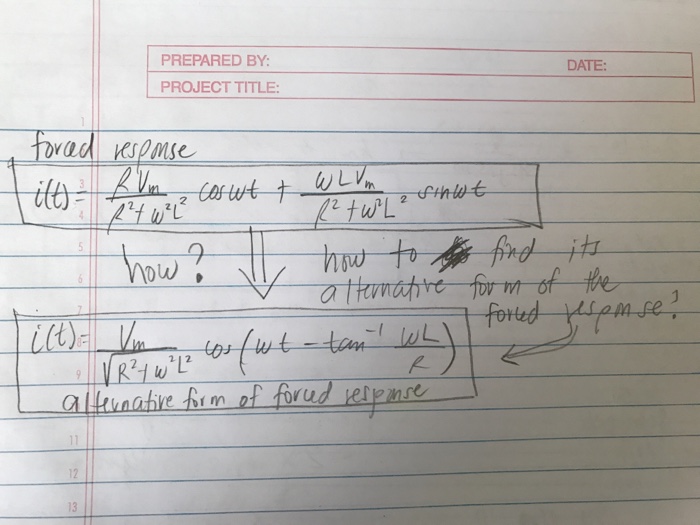 PREPARED BY: DATE:
PROJECT TITLE:
1
forced response
i(t) = RVm/(R²+ω²L²) cosωt + ωLVm/(R²+ω²L²) sinωt
3
4
5
how? ⇓ how to find its
6
alternative form of the
7
forced response?
i(t) = Vm/√(R²+ω²L²) cos(ωt − tan⁻¹ ωL/R)
8
9
alternative form of forced response
11
12
13